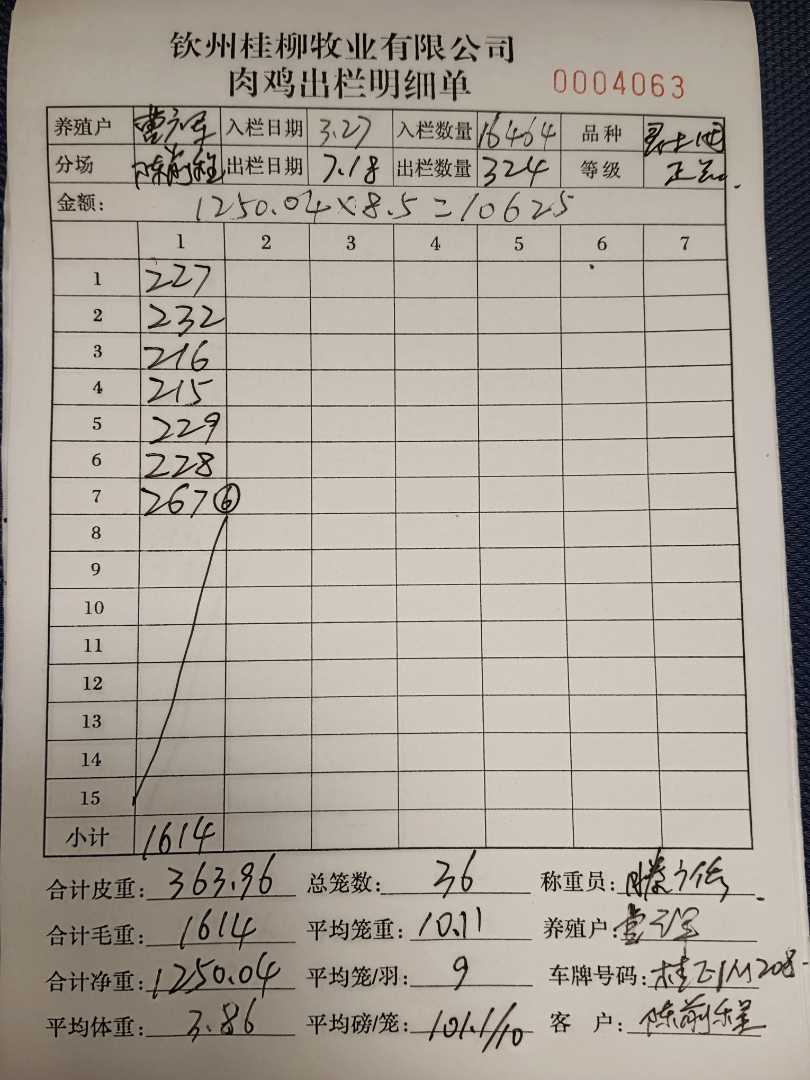 钦州桂柳牧业有限公司
肉鸡出栏明细单 0004063
养殖户 入栏日期 3.27 入栏数量 16464 品种
分场 陈前程 出栏日期 7.18 出栏数量 324 等级
金额: 1250.04×8.5=10625
1 2 3 4 5 6 7
1 227
2 232
3 216
4 215
5 229
6 228
7 267⑥
8
9
10
11
12
13
14
15
小计 1614
合计皮重: 363.96 总笼数: 36 称重员:
合计毛重: 1614 平均笼重: 10.11 养殖户:
合计净重: 1250.04 平均笼/羽: 9 车牌号码:
平均体重: 3.86 平均磅/笼: 101.1/10 客 户: 陈前程